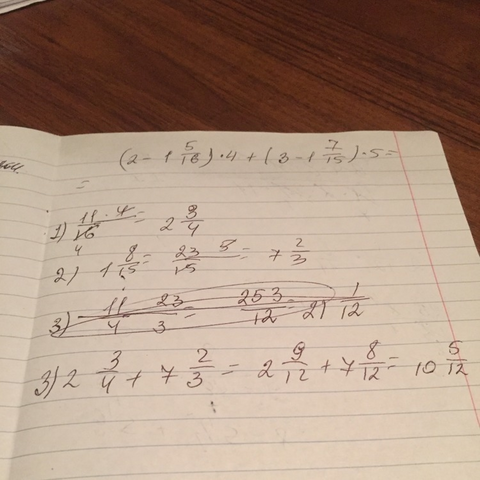 (2 - 1 5/16) · 4 + (3 - 1 7/15) · 5 =
=
1) 11 · 4/16 = 2 3/4
4
2) 1 8/15 = 23 · 5/15 = 7 2/3
3) 11/4 23/3 = 253/12 = 21 1/12
3) 2 3/4 + 7 2/3 = 2 9/12 + 7 8/12 = 10 5/12